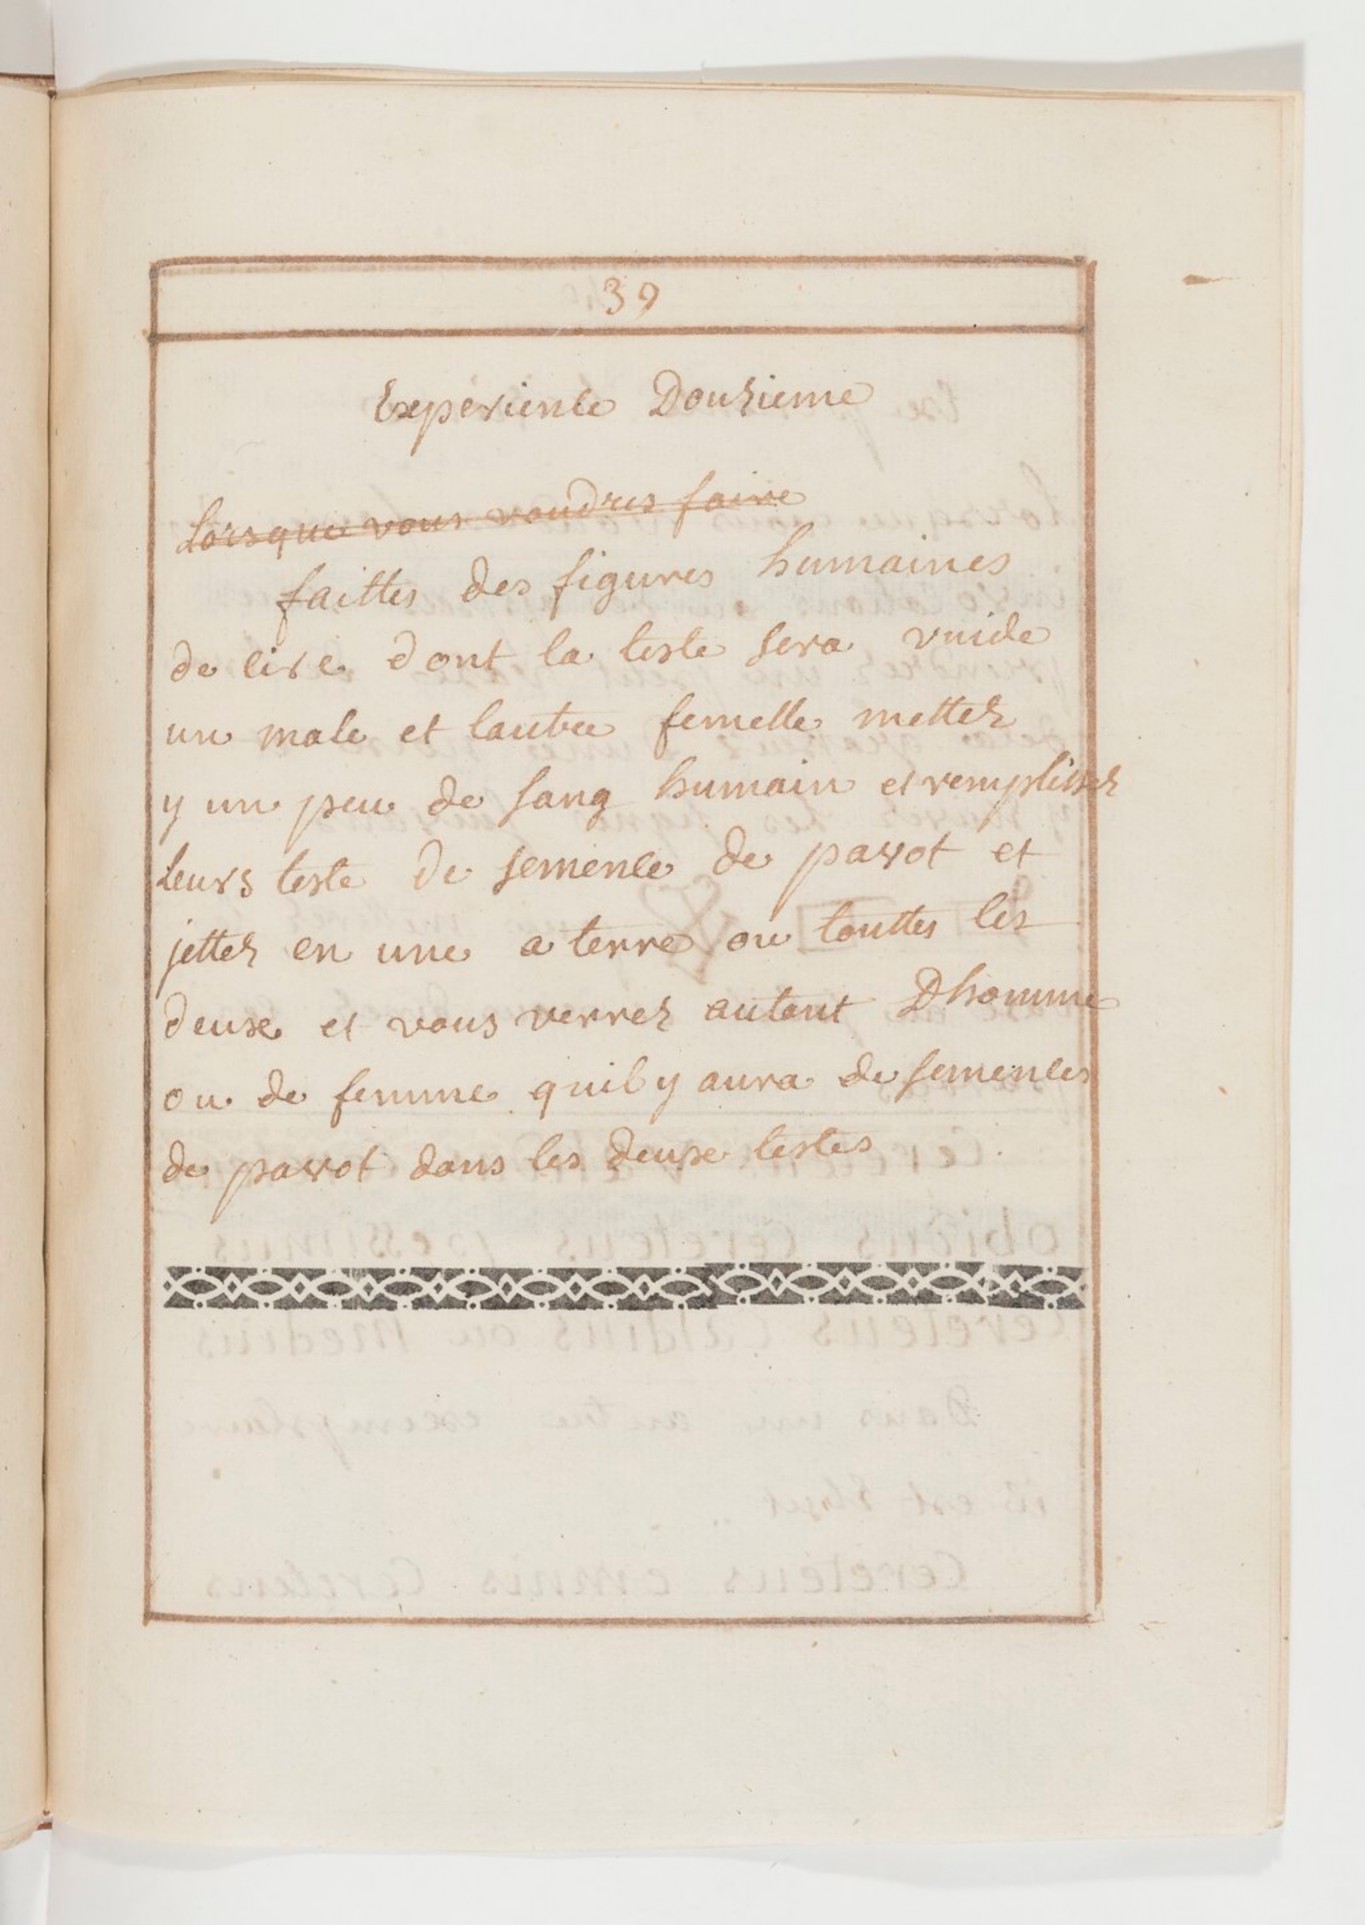 39
Experience Douzieme
Lorsque vous voudres faire
faittes des figures humaines
de cire dont la teste sera vuide
un male et lautre femelle mettez
y un peu de sang humain et remplissez
Leurs teste de semence de pavot et
jettez en une a terre ou touttes les
deuxe et vous verrez autant Dhomme
ou de femme quil y aura de semences
de pavot dans les deuxe testes